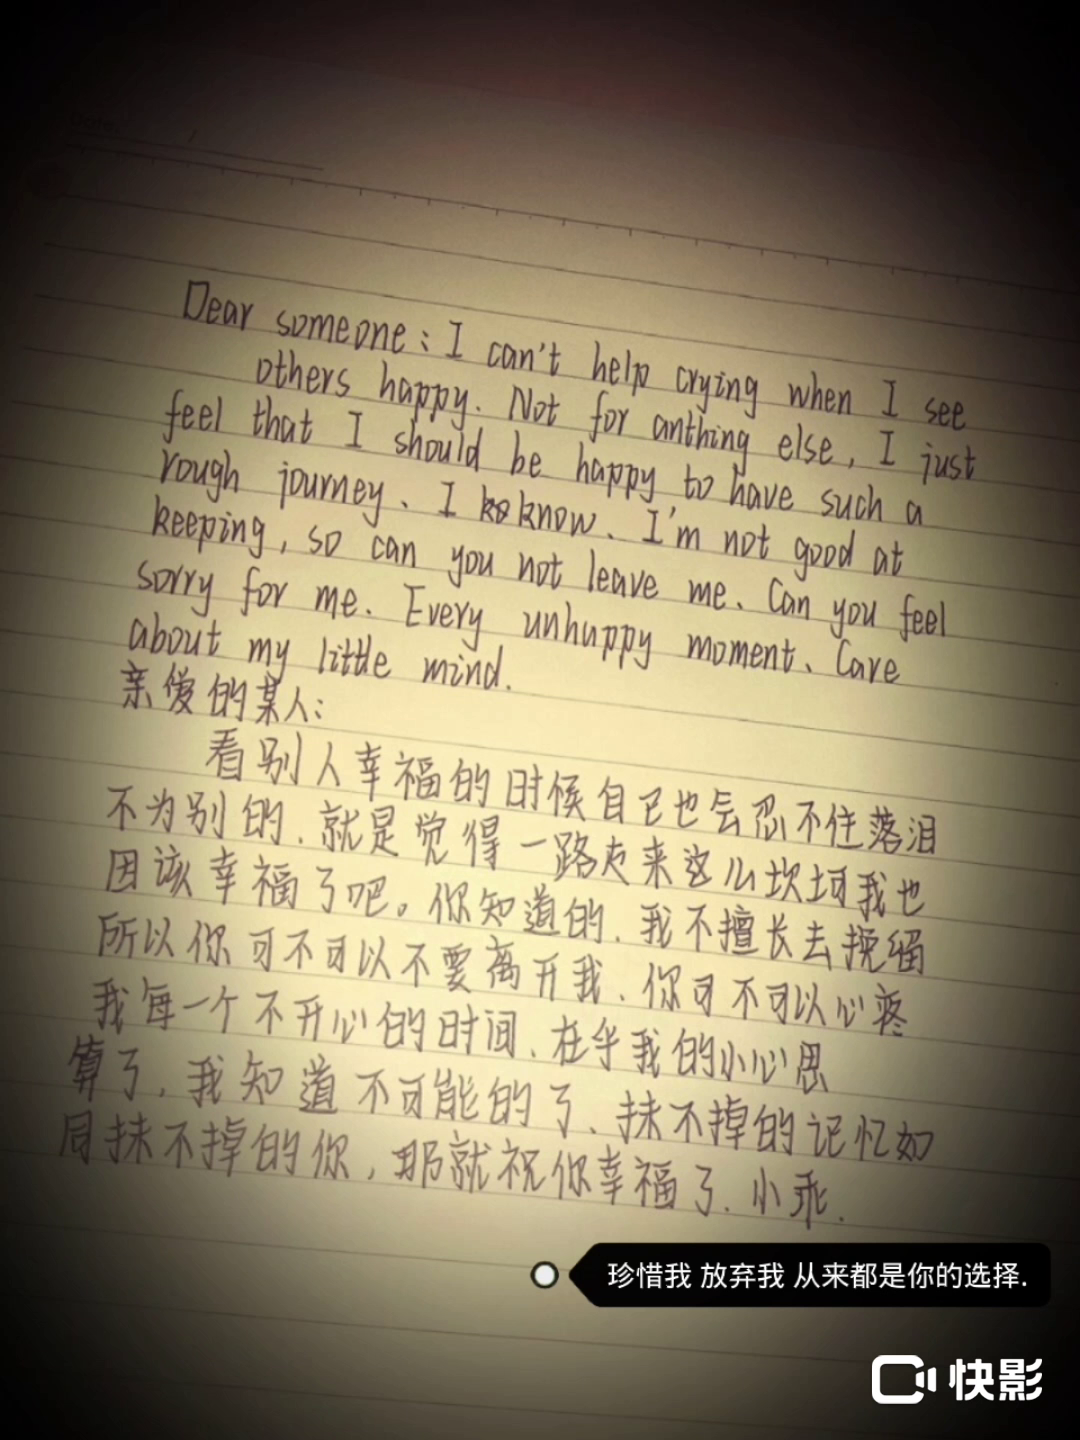 Dear someone: I can't help crying when I see
others happy. Not for anthing else, I just
feel that I should be happy to have such a
rough journey. I know. I'm not good at
keeping, so can you not leave me. Can you feel
sorry for me. Every unhuppy moment. Care
about my little mind.
亲爱的某人:
看别人幸福的时候自己也会忍不住落泪
不为别的.就是觉得一路走来这么坎坷我也
因该幸福了吧。你知道的.我不擅长去挽留
所以你可不可以不要离开我.你可不可以心疼
我每一个不开心的时间.在乎我的小心思
算了,我知道不可能的了.抹不掉的记忆如
同抹不掉的你,那就祝你幸福了.小乖.
珍惜我 放弃我 从来都是你的选择.
快影